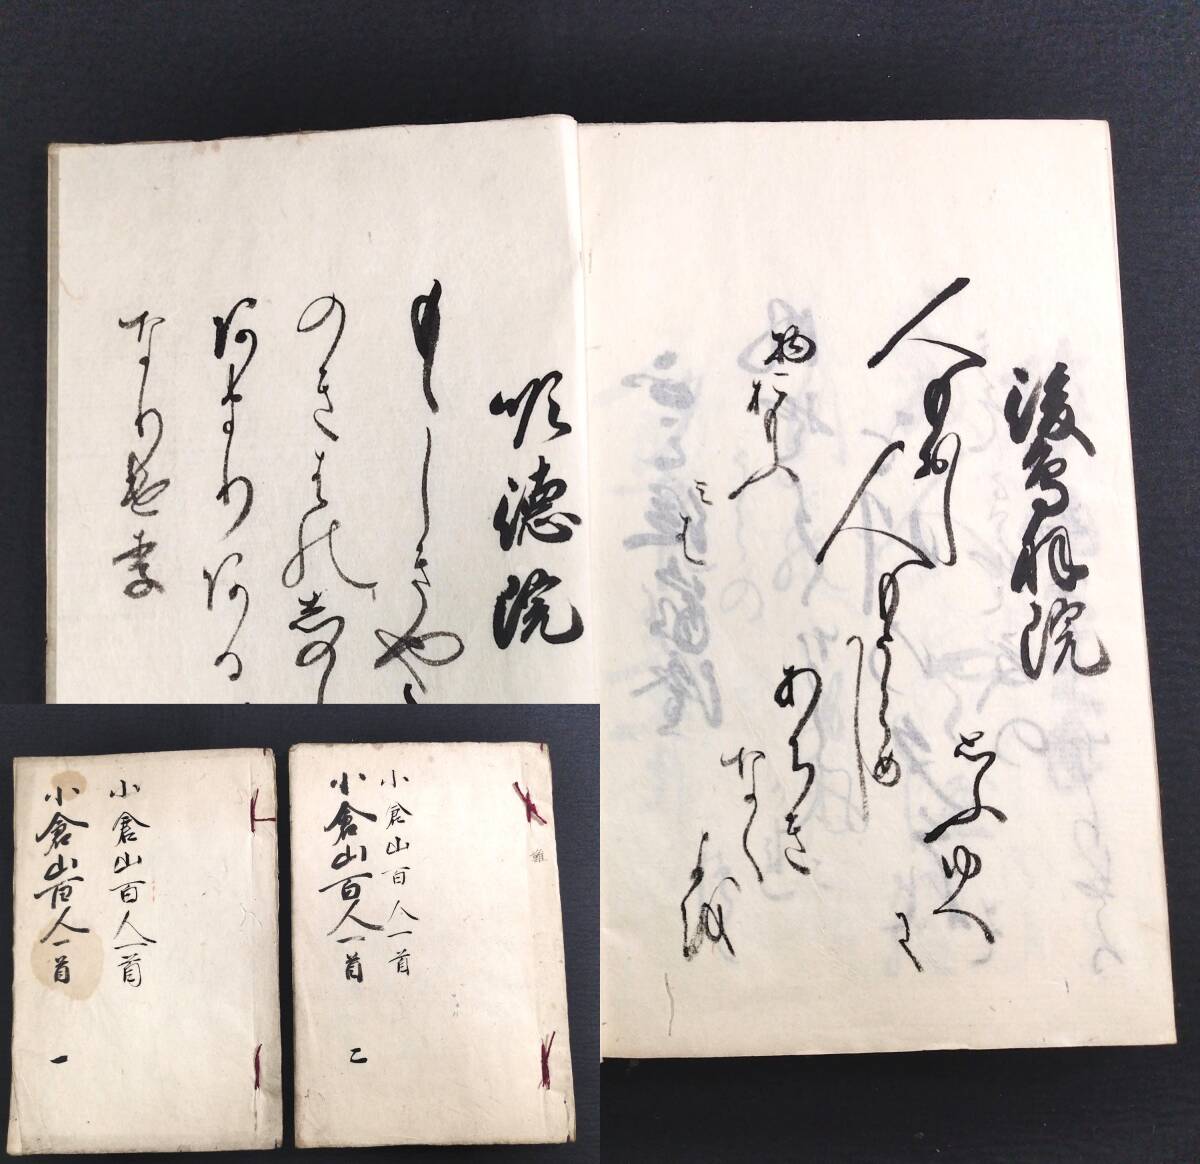 後鳥羽院
人もおし
人もうらめし
あちきなく
よを
おもふゆへ
に
物おもふ
みは
順徳院
もゝしきや
のきはの志の
あまりある
なりけり
小倉山百人一首
小倉山百人一首
一
小倉山百人一首
小倉山百人一首
二